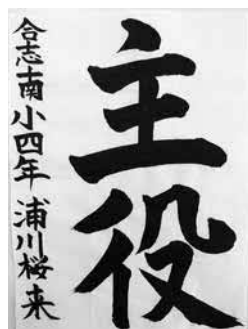 主役
合志南小四年 浦川桜来